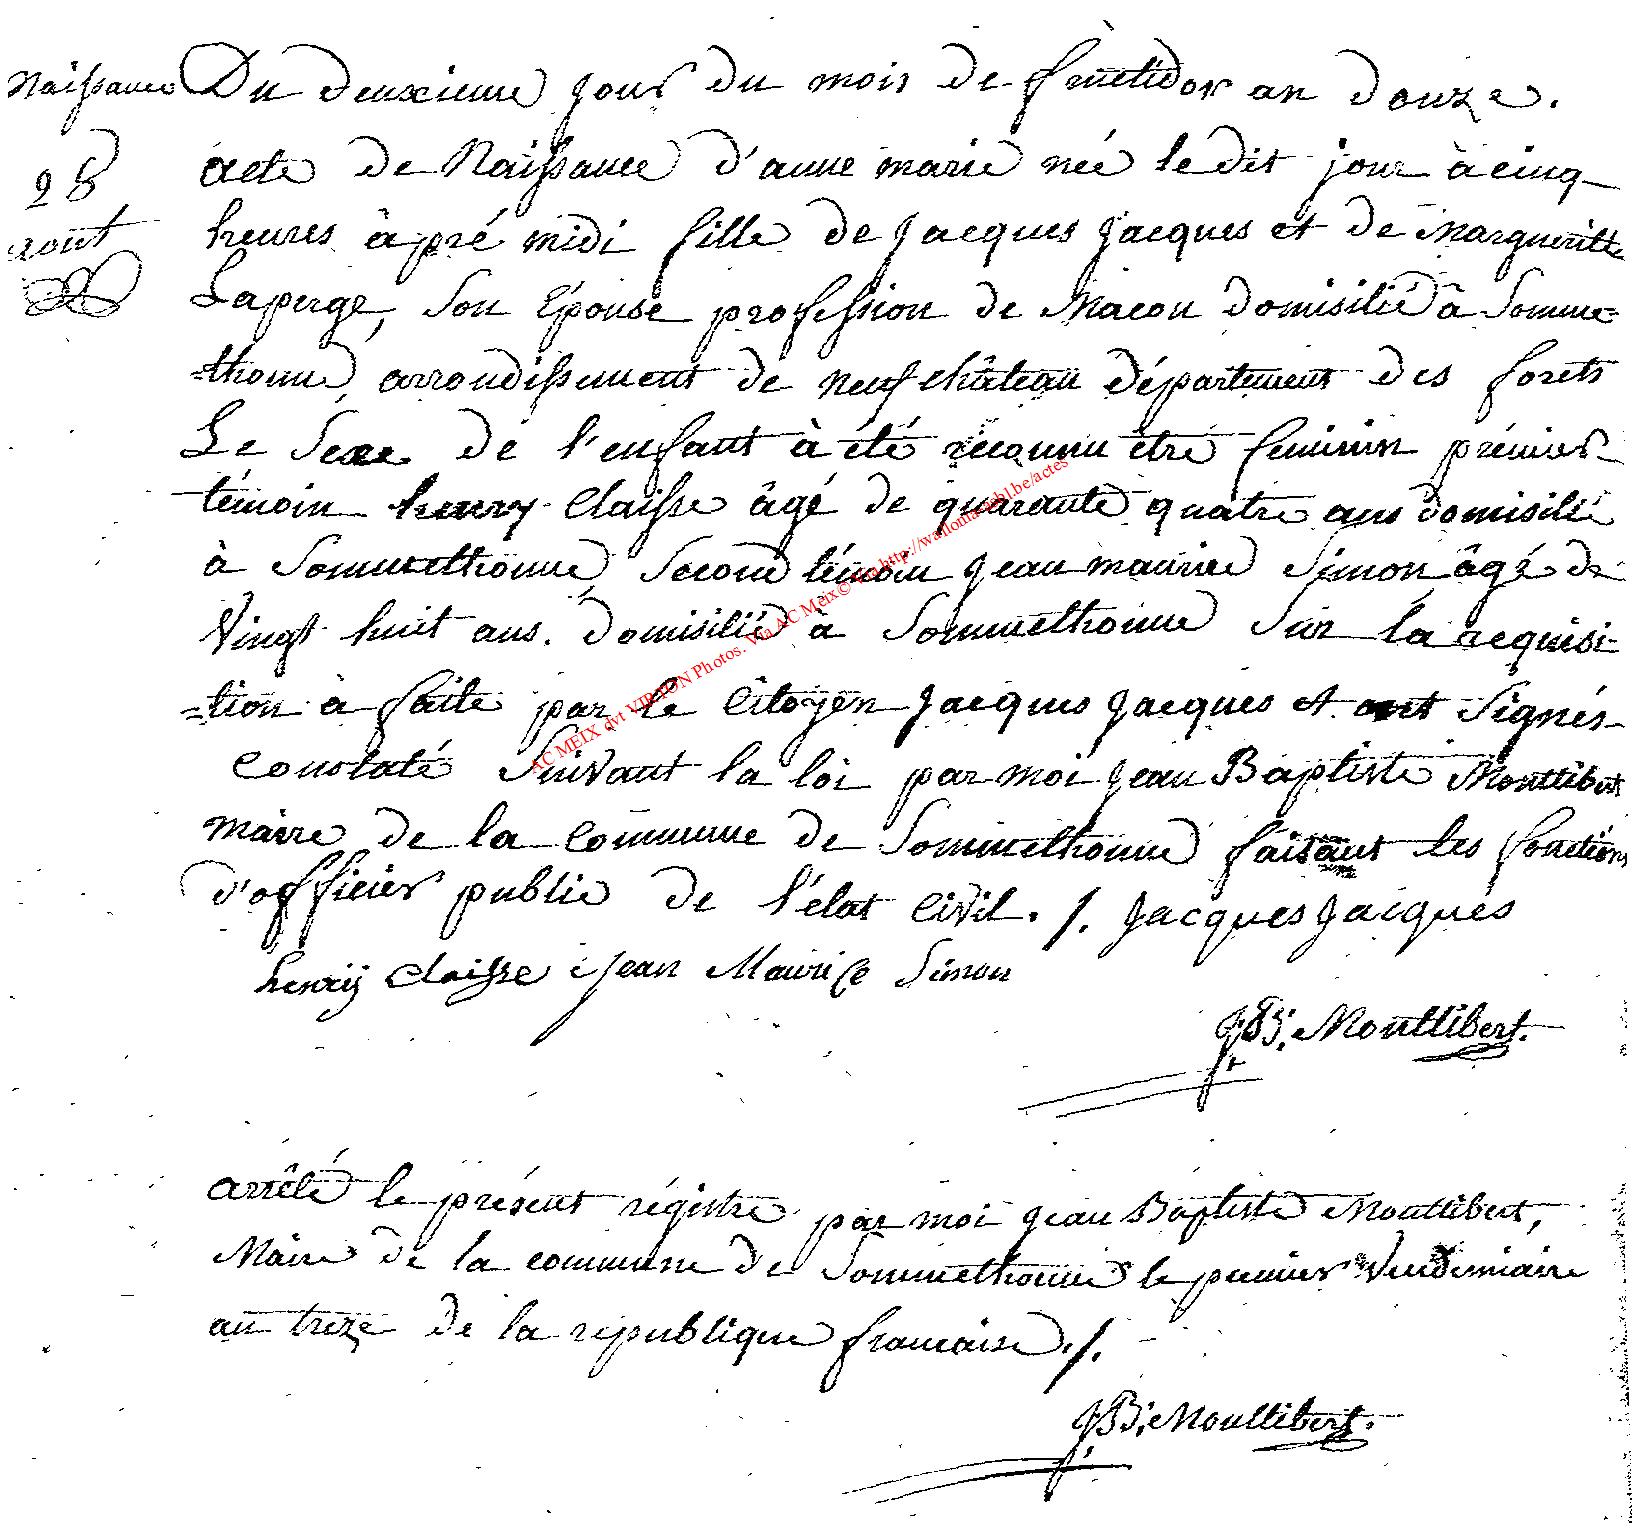 Naissance Du deuxieme jour du mois de fructidor an douze.
28
aout
acte de Naissance d'anne marie née le dit jour à cinq
heures à pré midi fille de jacques jacques et de Margueritte
Laperge, son Épouse profession de Macon domisilié à Somme=
=thonne, arrondissement de neufchâteau département des forets
Le Sexe de l'enfant à été reconnu être feminin prémier
témoin henry Claisse âgé de quarante quatre ans domisilié
à Sommethonne, Second témoin jean maurice Simon, âgé de
Vingt huit ans. domisilié à Sommethonne Sur la requisi=
=tion à faite par le Citoyen jacques jacques et ont Signés
Constaté Suivant la loi par moi jean Baptiste Montlibert
maire de la Commune de Sommethonne faisant les fonctions
d'officier public de l'état Civil. /. jacques jacques
henrij Claisse jean Maurice Simon
J.B. Montlibert.
arrêté le présent régistre par moi jean Baptiste Montlibert,
Maire de la commune de Sommethonne le premier Vendemiaire
an treze de la république francaise ./.
J.B. Montlibert.
AC MEIX dvt VIRTON Photos. Via AC Meix© sur http://wallonia.asbl.be/actes